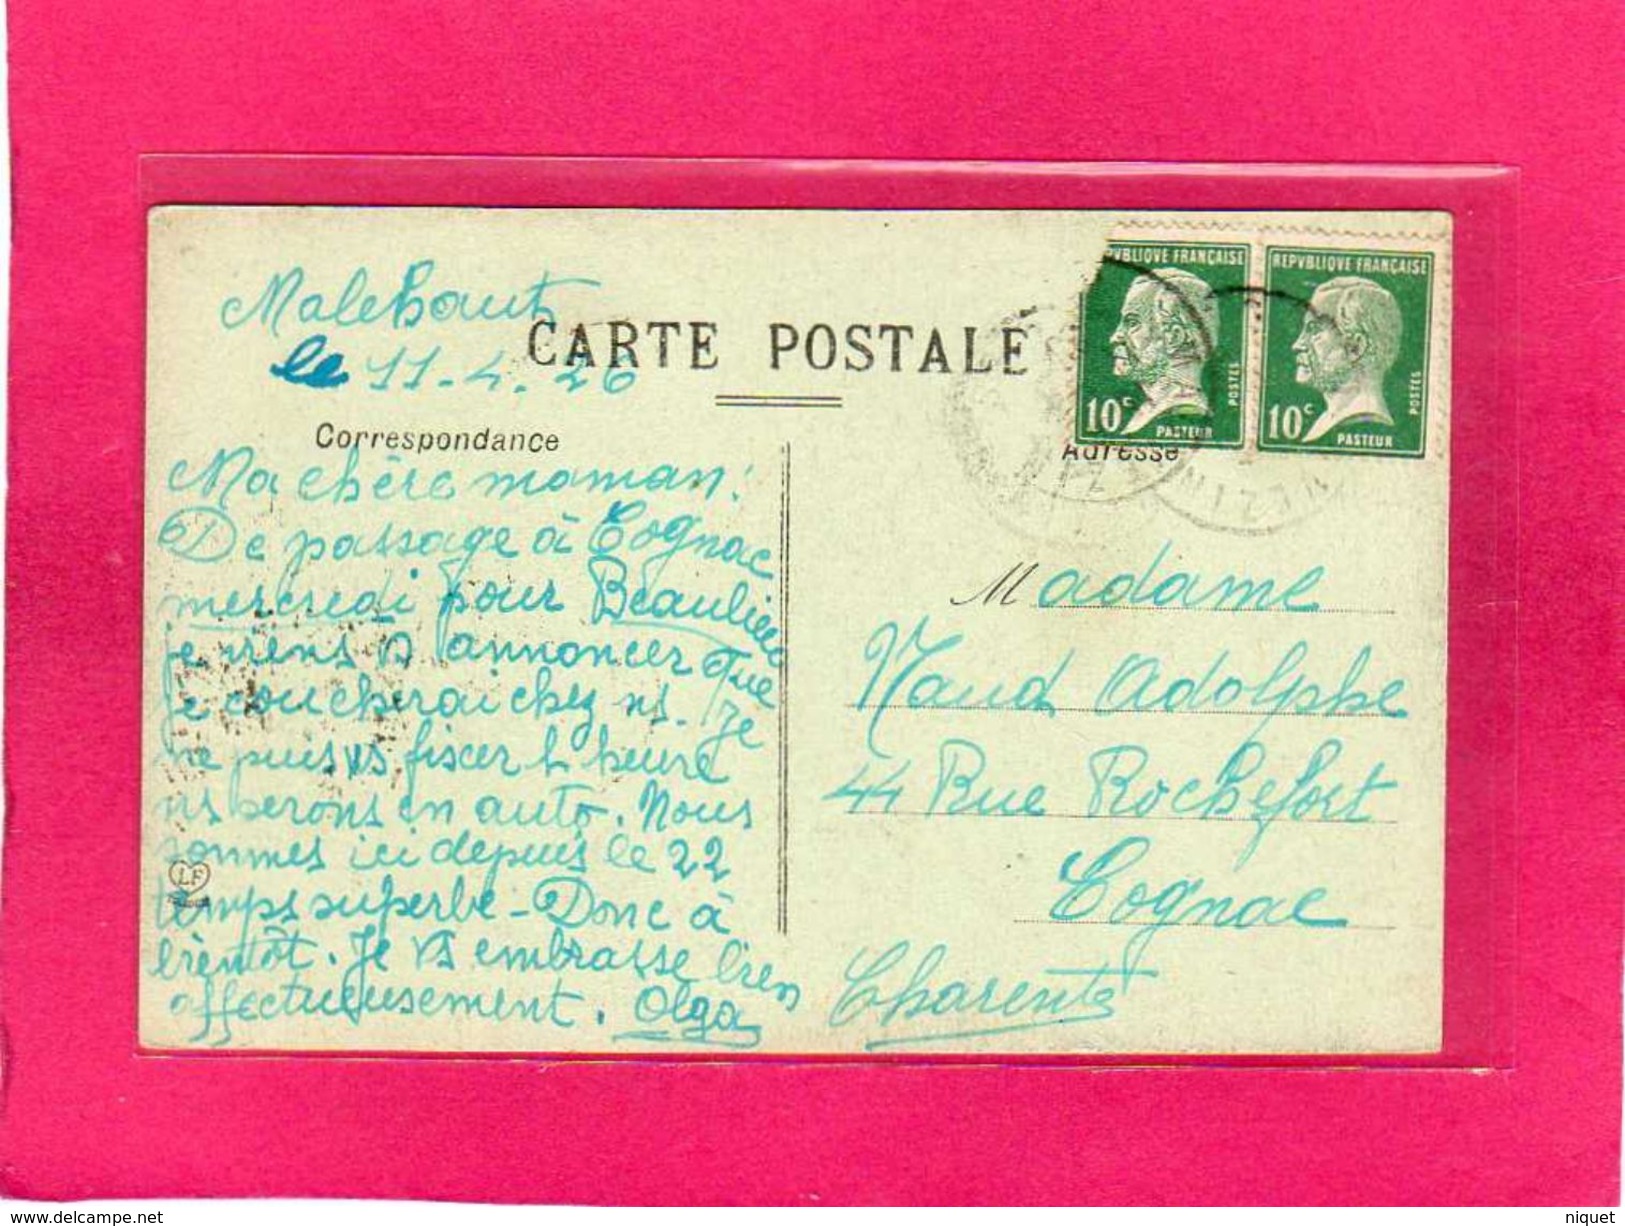 Malehaut
le 11-4-26
CARTE POSTALE
Correspondance
Adresse
RÉPUBLIQUE FRANÇAISE
10c
POSTES
PASTEUR
RÉPUBLIQUE FRANÇAISE
10c
POSTES
PASTEUR
Ma chère maman!
De passage à Cognac
mercredi pour Beaulieu
je viens vs annoncer que
je coucherai chez ns. Je
ne puis vs fixer l heure
ns serons en auto. Nous
sommes ici depuis le 22
temps superbe - Donc à
bientôt. Je vs embrasse bien
affectueusement. Olga
LF
Madame
Naud Adolphe
44 Rue Rochefort
Cognac
Charente
www.delcampe.net
niquet